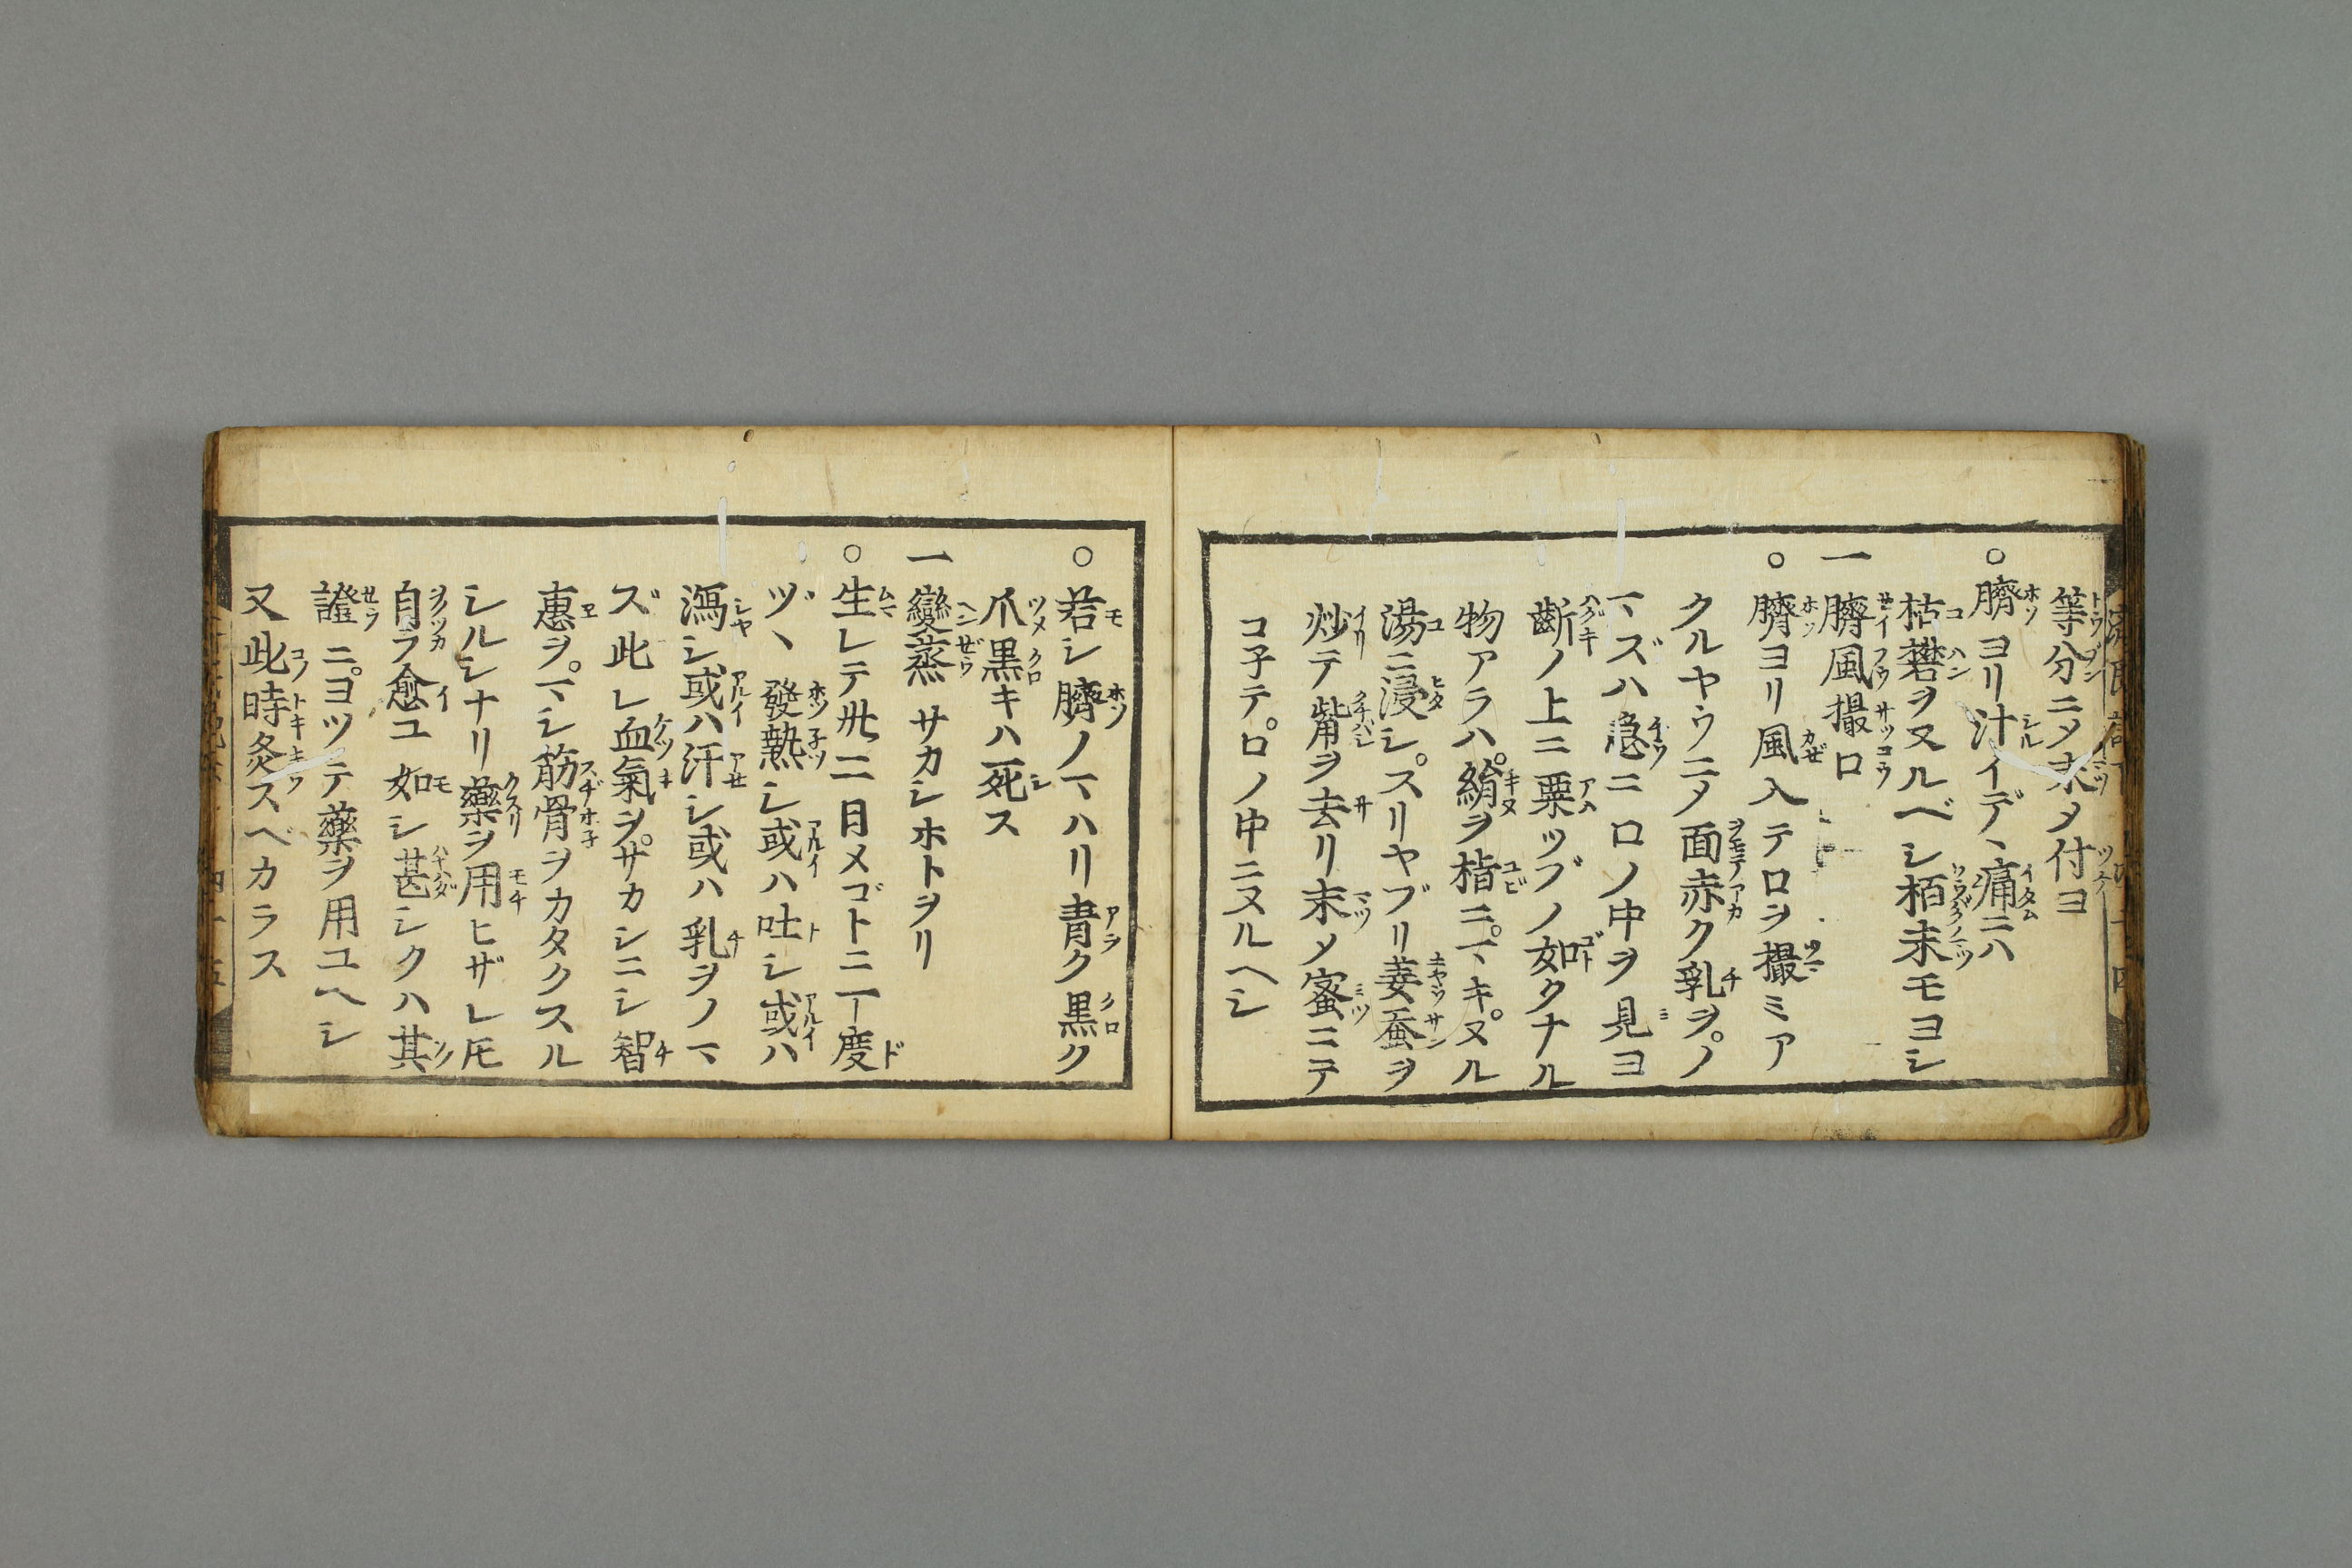 等分ニメ末メ付ヨ
○臍ヨリ汁イデヽ痛ニハ
枯礬ヲヌルベシ栢末モヨシ
一臍風撮口
○臍ヨリ風入テロヲ撮ミア
クルヤウニメ面赤ク乳ヲ。ノ
マズハ急ニ口ノ中ヲ見ヨ
齗ノ上ニ粟ツブノ如クナル
物アラハ。絹ヲ指ニ。マキ。ヌル
湯ニ浸シ。スリヤブリ姜蚕ヲ
炒テ觜ヲ去リ末メ蜜ニテ
コ子テ。口ノ中ニヌルヘシ
○若シ臍ノマハリ青ク黒ク
爪黒キハ死ス
一變蒸 サカシホトヲリ
○生レテ卅二日メゴトニ一度
ヅヽ發熱シ或ハ吐シ或ハ
瀉シ或ハ汗シ或ハ乳ヲノマ
ズ此レ血氣ヲ。サカンニシ智
惠ヲ。マシ筋骨ヲカタクスル
シルシナリ藥ヲ用ヒザレ𪜈
自ラ愈ユ如シ甚シクハ其
證ニ。ヨツテ藥ヲ用ユヘシ
又此時灸スベカラス